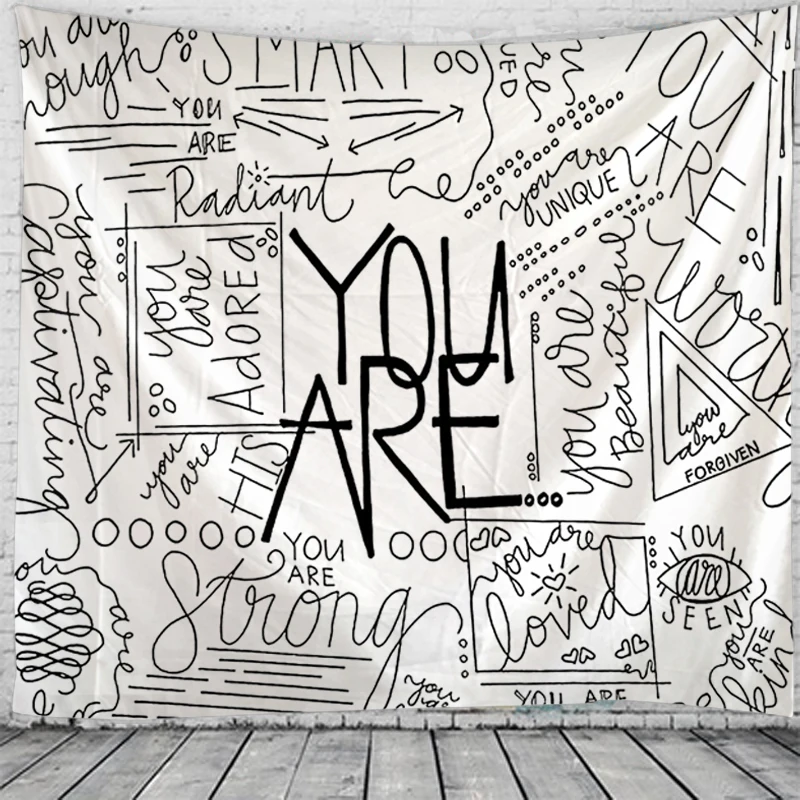 you are
SMART
YOU
ARE
Radiant
you are
UNIQUE
YOU
ARE
you are
captivating
you
are
ADORED
YOU
ARE
you are
Beautiful
you
are
FORGIVEN
you
are
HIS
YOU
ARE
Strong
you are
loved
YOU
are
SEEN
are
you
ARE
you
YOU ARE